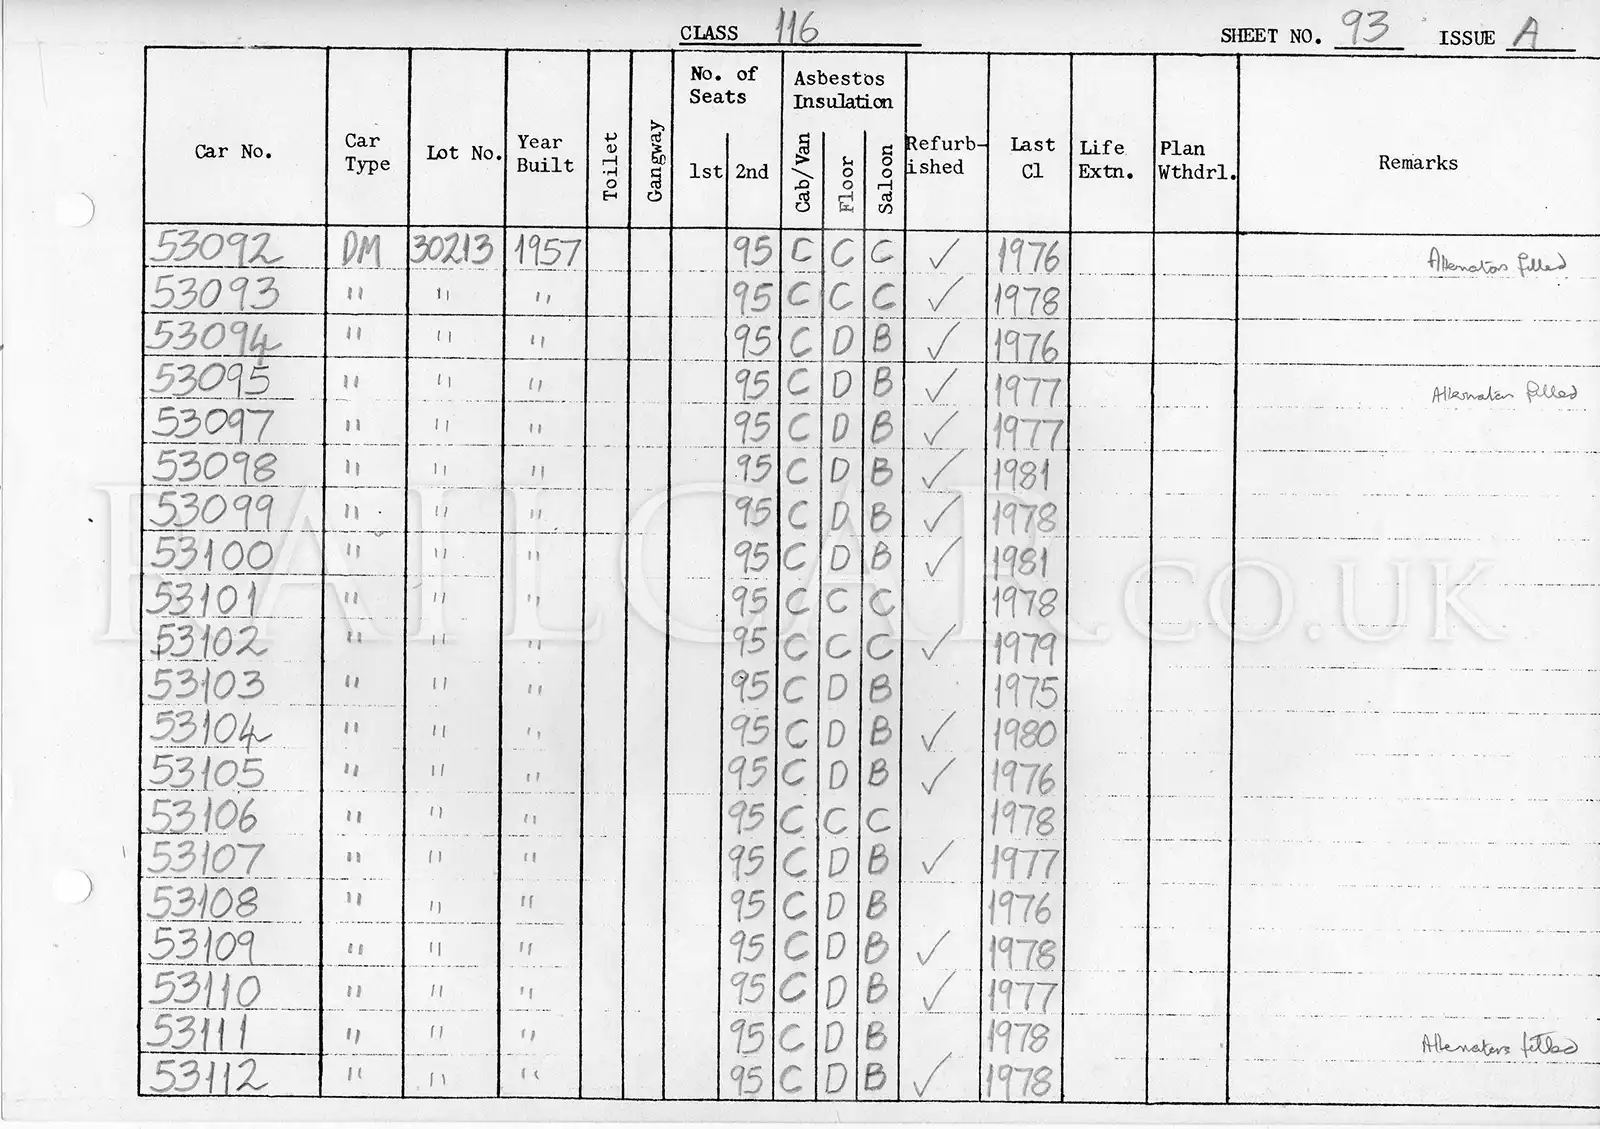 CLASS 116 SHEET NO. 93 ISSUE A
Car No. Car Type Lot No. Year Built Toilet Gangway No. of Seats 1st 2nd Asbestos Insulation Cab/Van Floor Saloon Refurb-ished Last Cl Life Extn. Plan Wthdrl. Remarks
53092 DM 30213 1957 95 C C C ✓ 1976 Alternators fitted
53093 " " " 95 C C C ✓ 1978
53094 " " " 95 C D B ✓ 1976
53095 " " " 95 C D B ✓ 1977 Alternators fitted
53097 " " " 95 C D B ✓ 1977
53098 " " " 95 C D B ✓ 1981
53099 " " " 95 C D B ✓ 1978
53100 " " " 95 C D B ✓ 1981
53101 " " " 95 C C C 1978
53102 " " " 95 C C C ✓ 1979
53103 " " " 95 C D B 1975
53104 " " " 95 C D B ✓ 1980
53105 " " " 95 C D B ✓ 1976
53106 " " " 95 C C C 1978
53107 " " " 95 C D B ✓ 1977
53108 " " " 95 C D B 1976
53109 " " " 95 C D B ✓ 1978
53110 " " " 95 C D B ✓ 1977
53111 " " " 95 C D B 1978 Alternators fitted
53112 " " " 95 C D B ✓ 1978
RAILCAR.CO.UK